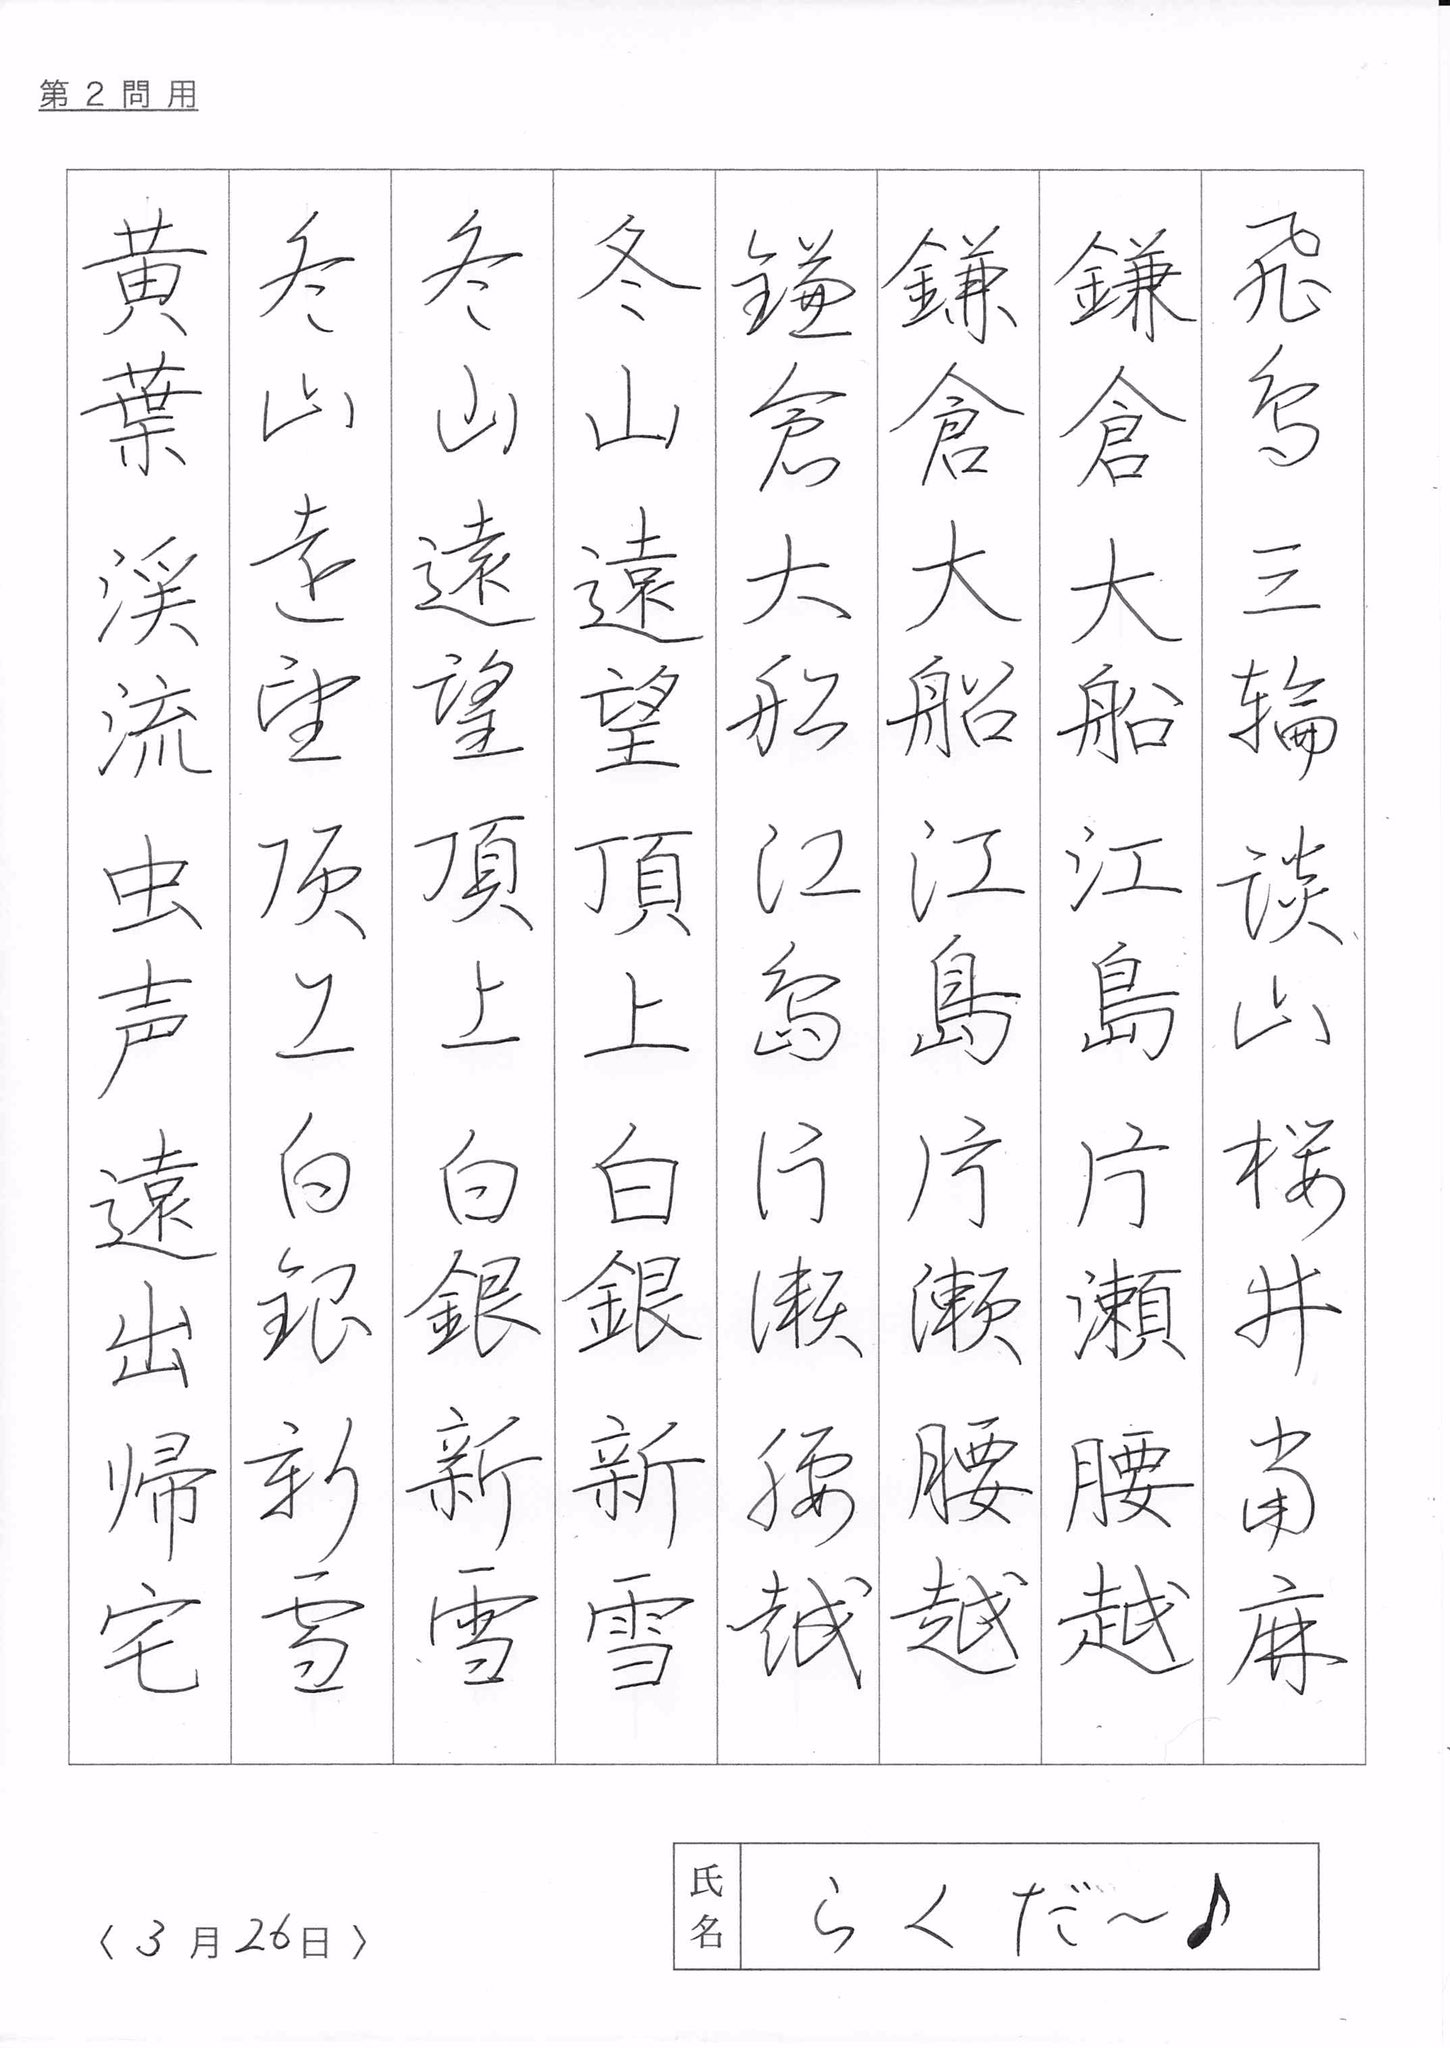 第２問用
飛鳥三輪談山桜井當麻
鎌倉大船江島片瀬腰越
鎌倉大船江島片瀬腰越
鎌倉大船江島片瀬腰越
冬山遠望頂上白銀新雪
冬山遠望頂上白銀新雪
冬山遠望頂上白銀新雪
黄葉渓流虫声遠出帰宅
氏名 らくだ〜♪
〈３月26日〉